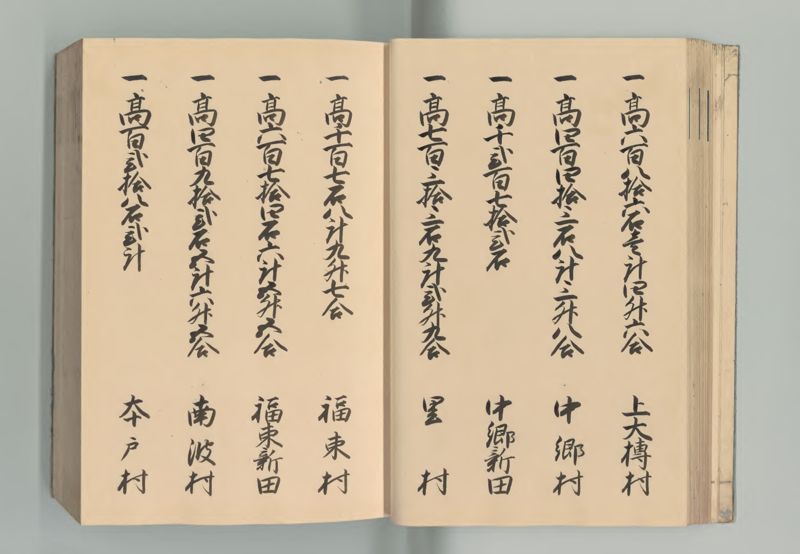 一高六百八拾六石壱斗四升六合 上大榑村
一高四百四拾三石八斗三升八合 中郷村
一高千弐百七拾弐石 中郷新田
一高七百三拾三石九斗弐升九合 里村
一高千百七石八斗九升七合 福束村
一高六百七拾四石六斗五升五合 福束新田
一高四百九拾弐石五斗六升五合 南波村
一高百弐拾八石弐斗 本戸村